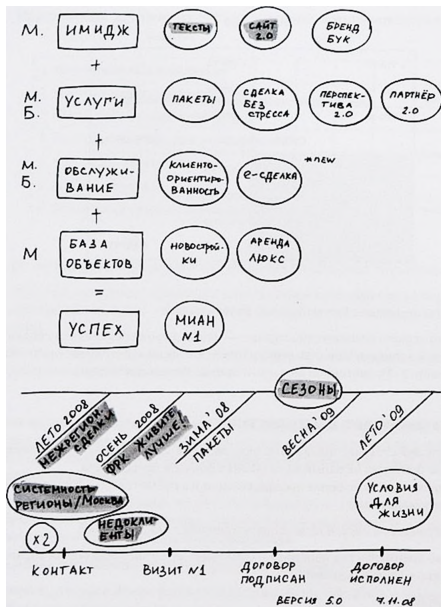 М. ИМИДЖ ТЕКСТЫ САЙТ 2.0 БРЕНД БУК
+
М. Б. УСЛУГИ ПАКЕТЫ СДЕЛКА БЕЗ СТРЕССА ПЕРСПЕКТИВА 2.0 ПАРТНЁР 2.0
+
М. Б. ОБСЛУЖИВАНИЕ КЛИЕНТООРИЕНТИРОВАННОСТЬ е-СДЕЛКА *NEW
+
М БАЗА ОБЪЕКТОВ НОВОСТРОЙКИ АРЕНДА ЛЮКС
=
УСПЕХ МИАН N1
СЕЗОНЫ
ЛЕТО 2008
МЕЖРЕГИОН. СДЕЛКИ
ОСЕНЬ 2008
ФРК ЖИВИТЕ ЛУЧШЕ!
ЗИМА' 08
ПАКЕТЫ
ВЕСНА'09
ЛЕТО'09
СИСТЕМНОСТЬ РЕГИОНЫ/МОСКВА
УСЛОВИЯ ДЛЯ ЖИЗНИ
x2 НЕДОКЛИЕНТЫ
КОНТАКТ ВИЗИТ N1 ДОГОВОР ПОДПИСАН ДОГОВОР ИСПОЛНЕН
ВЕРСИЯ 5.0 7.11.08